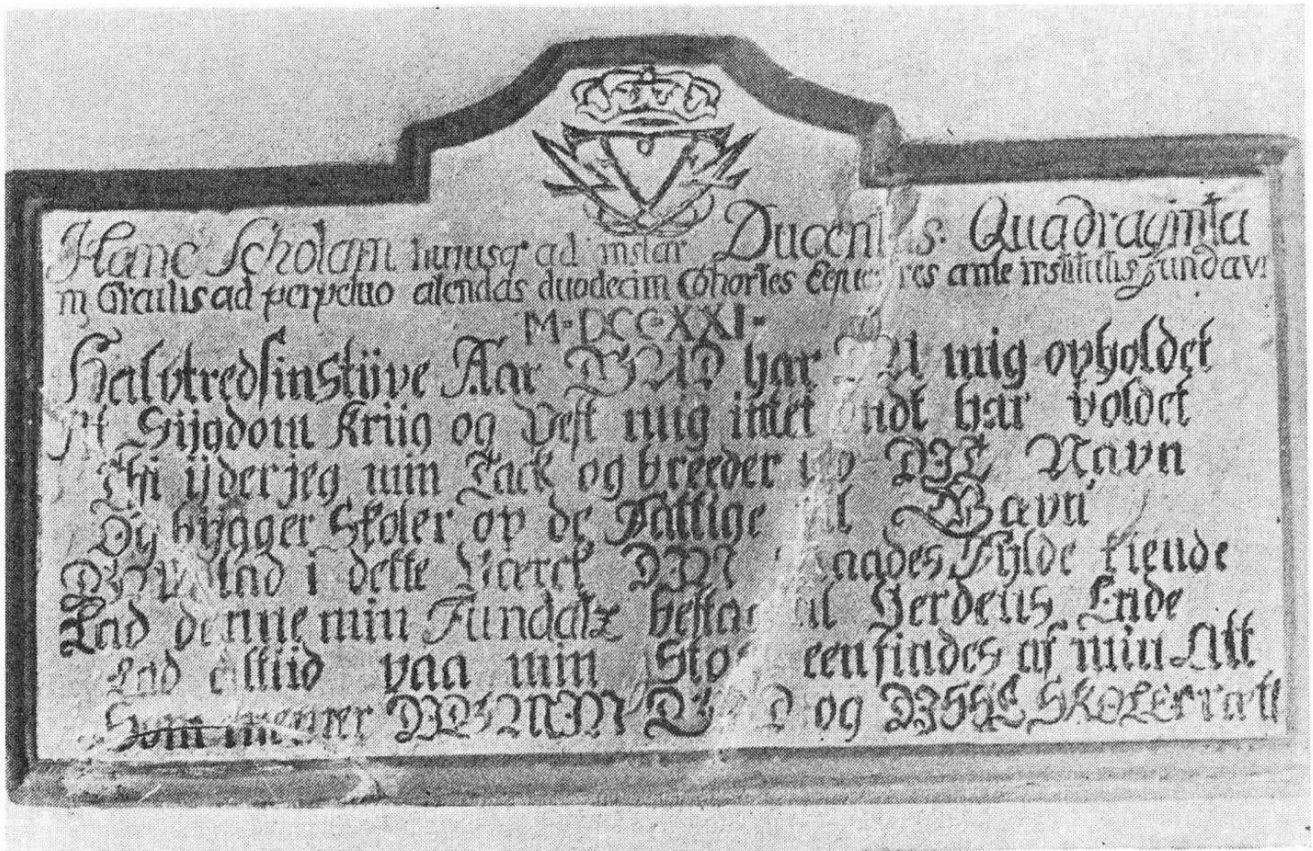 Hanc Scholam hujusq ad instar Ducentas Quadraginta
in Gratiis ad perpetuo alendas duodecim Cohortes Eques res ante institutis fundavi
M·DCC·XXI·
Halvtredsinstÿve Aar GUD har mig opholdet
At Sÿgdom Kriig og Pest mig intet ondt har voldet
Thi ÿder jeg min Tack og breeder DIT Navn
Og bÿgger Skoler op de Fattige til Gavn
GUD lad i dette Værck DIN Naades Fÿlde kiende
Lad denne min Fundatz bestaa til Verdens Ende
Lad altiid paa min Stoel een findes af min Æt
Som meener DIG MIN GUD og DISSE SKOLER ræt